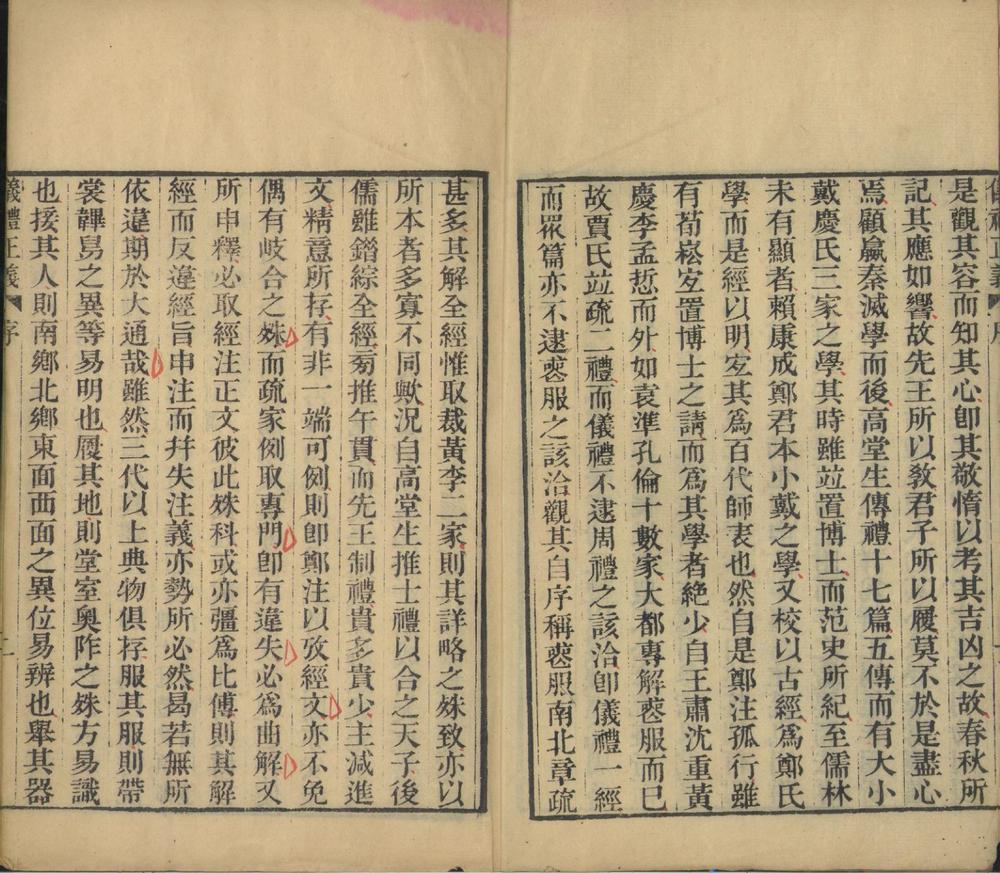 儀禮正義 序
是觀其容而知其心卽其敬惰以考其吉凶之故春秋所
記其應如響故先王所以敎君子所以履莫不於是盡心
焉顧嬴秦滅學而後高堂生傳禮十七篇五傳而有大小
戴慶氏三家之學其時雖竝置博士而范史所紀至儒林
未有顯者賴康成鄭君本小戴之學又校以古經爲鄭氏
學而是經以明宐其爲百代師表也然自是鄭注孤行雖
有荀崧宐置博士之請而爲其學者絶少自王肅沈重黃
慶李孟悊而外如袁準孔倫十數家大都專解喪服而已
故賈氏竝疏二禮而儀禮不逮周禮之該洽卽儀禮一經
而眾篇亦不逮喪服之該洽觀其自序稱喪服南北章疏
甚多其解全經惟取裁黃李二家則其詳略之殊致亦以
所本者多寡不同歟況自高堂生推士禮以合之天子後
儒雖錯綜全經菊推午貫而先王制禮貴多貴少主減進
文精意所存有非一端可例則卽鄭注以攷經文亦不免
偶有岐合之殊而疏家例取專門卽有違失必爲曲解又
所申釋必取經注正文彼此殊科或亦彊爲比傅則其解
經而反違經旨申注而幷失注義亦勢所必然曷若無所
依違期於大通哉雖然三代以上典物俱存服其服則帶
裳韠舄之異等易明也履其地則堂室奧阼之殊方易識
也接其人則南鄉北鄉東面西面之異位易辨也舉其器
儀禮正義 序 二